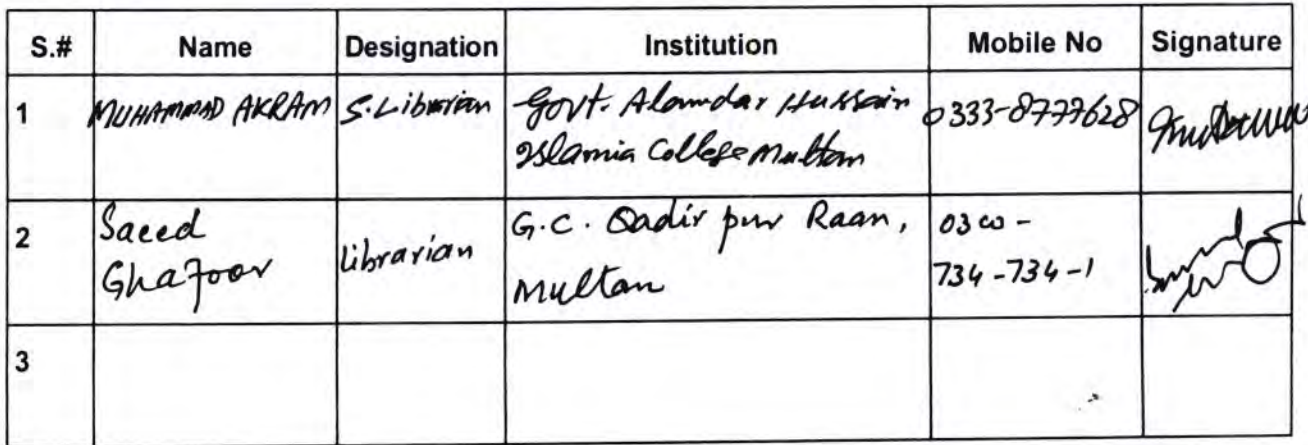 S.# Name Designation Institution Mobile No Signature
1 MUHAMMAD AKRAM S.Librarian Govt. Alamdar Hussain 0333-8777628
Islamia College Multan
2 Saeed Ghafoor Librarian G.C. Qadir pur Raan, 0300-
Multan 734-734-1
3